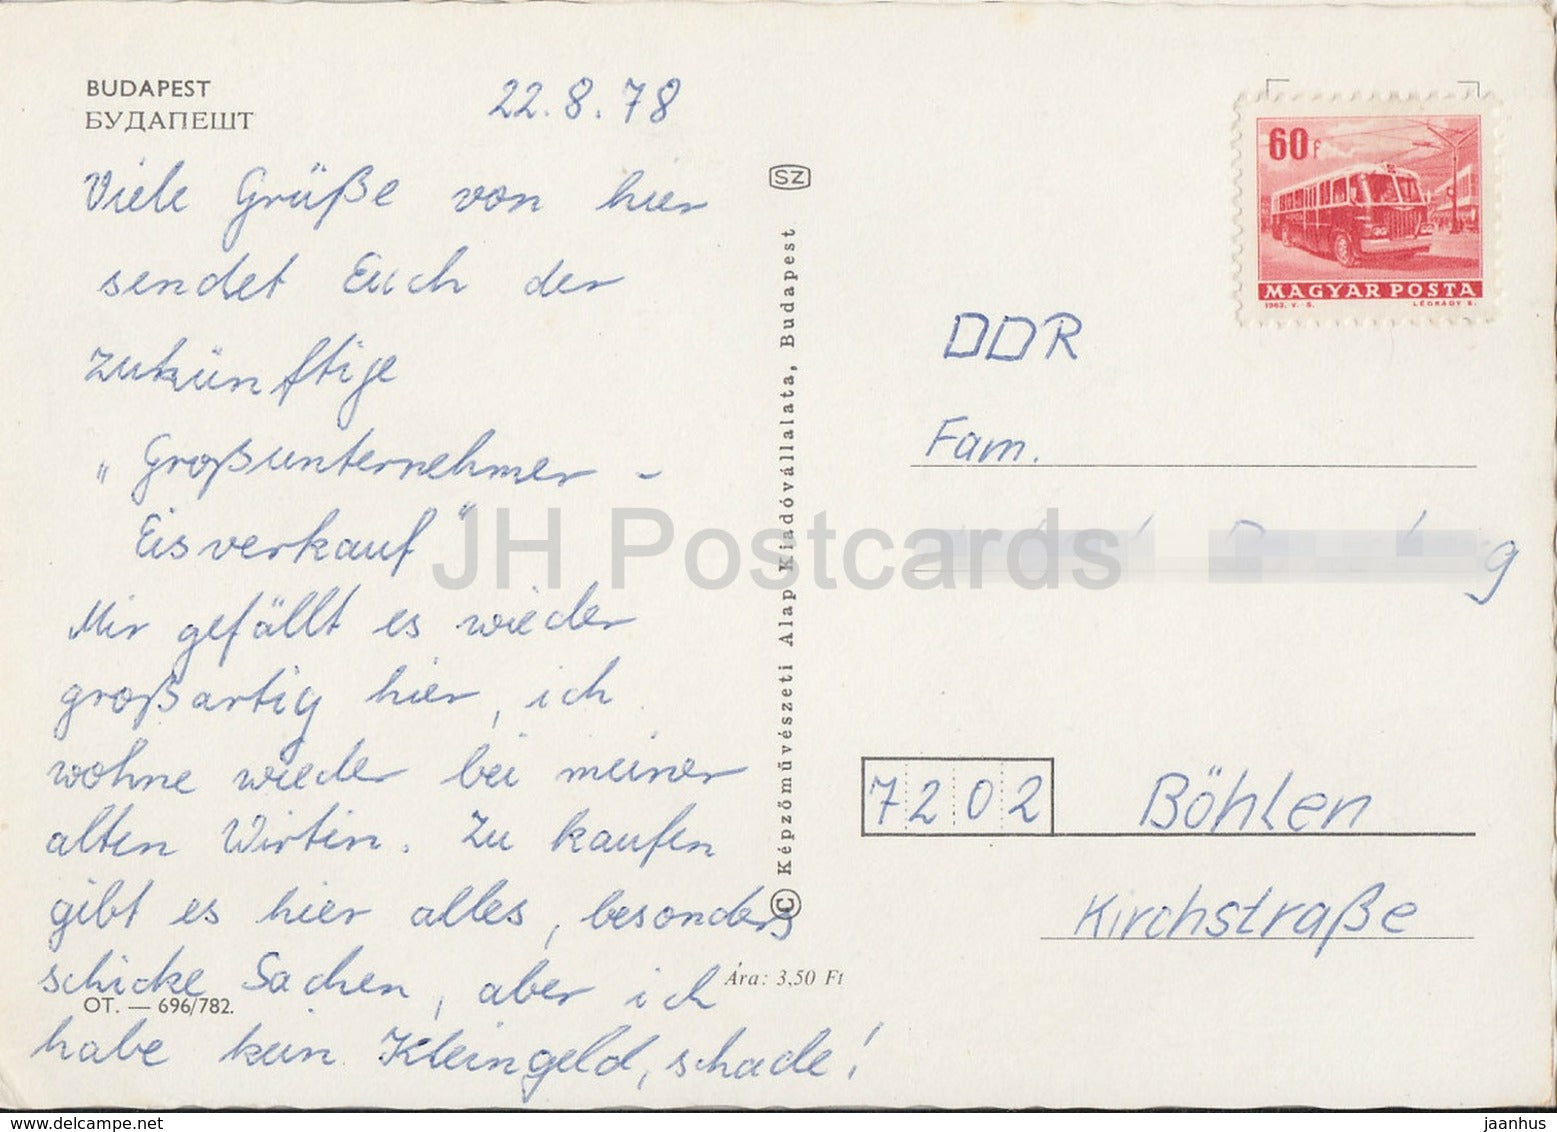 BUDAPEST
БУДАПЕШТ
22.8.78
Viele Grüße von hier
sendet Euch der
zukünftige
„Großunternehmer -
Eisverkauf“
Mir gefällt es wieder
großartig hier, ich
wohne wieder bei meiner
alten Wirtin. Zu kaufen
gibt es hier alles, besonders
schicke Sachen, aber ich
habe kein Kleingeld, schade!
OT. — 696/782.
Ára: 3,50 Ft
SZ
© Képzőművészeti Alap Kiadóvállalata, Budapest
JH Postcards
60f
MAGYAR POSTA
1963. V. S.
LÉGRÁDY S.
DDR
Fam.
7202 Böhlen
Kirchstraße
www.delcampe.net
jaanhus